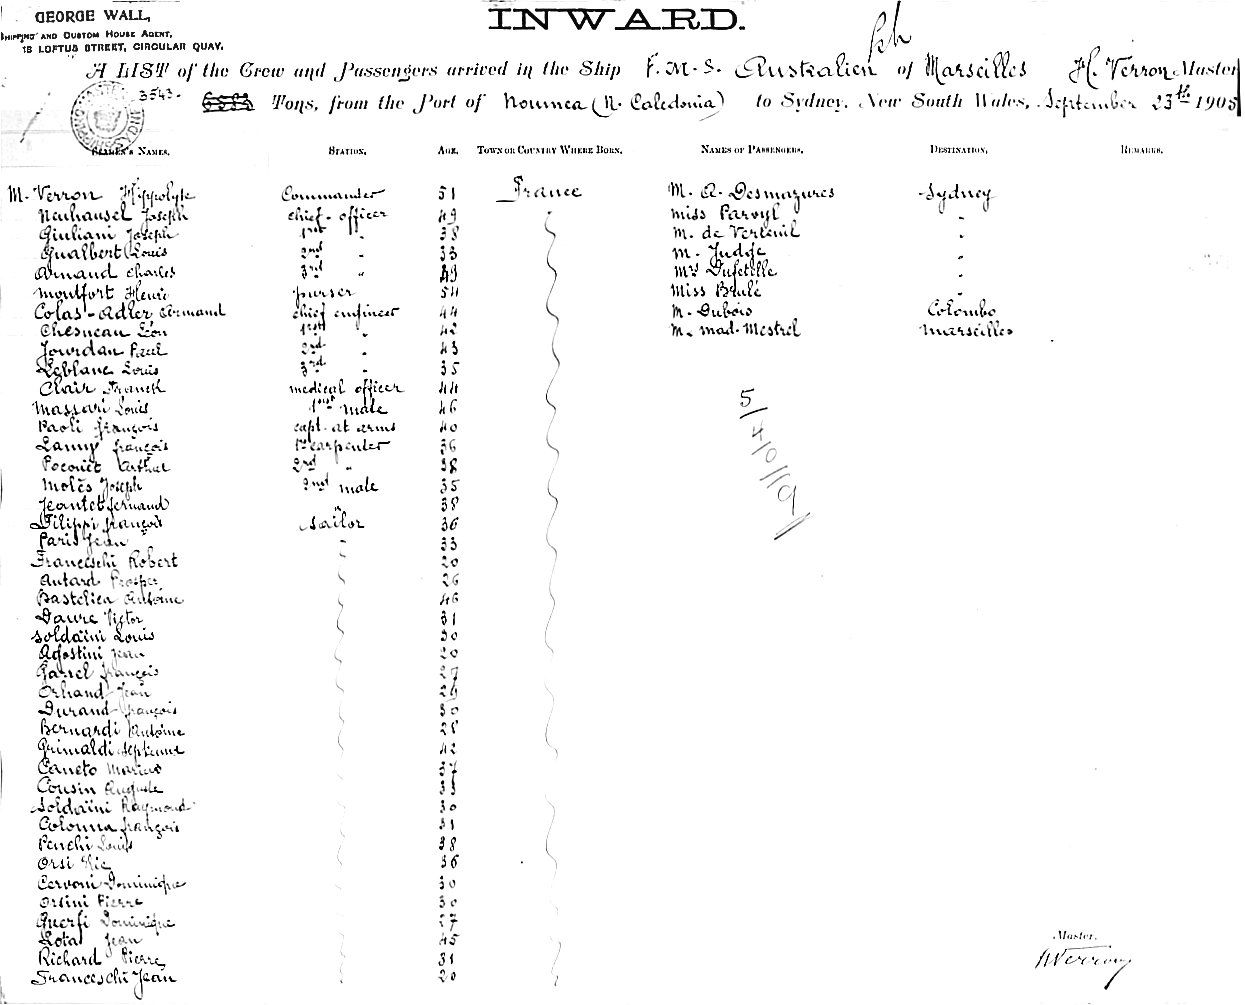 GEORGE WALL,
SHIPPING AND CUSTOM HOUSE AGENT,
18 LOFTUS STREET, CIRCULAR QUAY.
INWARD.
A LIST of the Crew and Passengers arrived in the Ship F. M. S. Australien of Marseilles H. Verron Master
3543. Tons, from the Port of Noumea (N. Caledonia) to Sydney, New South Wales, September 23th 1905
SEAMEN'S NAMES. STATION. AGE. TOWN OR COUNTRY WHERE BORN. NAMES OF PASSENGERS. DESTINATION. REMARKS.
M. Verron Hippolyte Commander 51 France M. A. Desmazures Sydney
Neuhausel Joseph chief-officer 49 " Miss Parvyl "
Giuliani Joseph 1st " 38 M. de Verteuil "
Gualbert Louis 2nd " 33 M. Judge "
Armand Charles 3rd " 49 Mrs Dufetelle "
Montfort Henri purser 54 Miss Brulé "
Colas-Adler Armand chief engineer 44 M. Dubois Colombo
Chesneau Léon 1st " 42 M. mad. Mestrel Marseilles
Jourdan Paul 2nd " 43
Leblanc Louis 3rd " 35
Clair Franck medical officer 44
Massari Louis 1st male 46
Paoli françois capt. at arms 40
Lanny françois 1st carpenter 36
Poconet Arthur 2nd " 38
Molès Joseph 2nd male 35
Jeantet fernand " 38
Filippi françois sailor 36
Paris Jean " 33
Franceschi Robert 20
Autard Prosper 26
Bastelica Antoine 46
Daure Victor 31
Soldaïni Louis 30
Agostini Jean 20
Garsel françois 27
Orhand Jean 26
Durand françois 30
Bernardi Antoine 28
Grimaldi 42
Caneto Marius 37
Cousin Auguste 33
Soldaïni Raymond 30
Colonna françois 31
Penchi Louis 38
Orsi 36
Cervoni Dominique 30
Orsini Pierre 30
Guerfi Dominique 27
Lota Jean 45
Richard Pierre 31
Franceschi Jean 20
Master.
H Verron